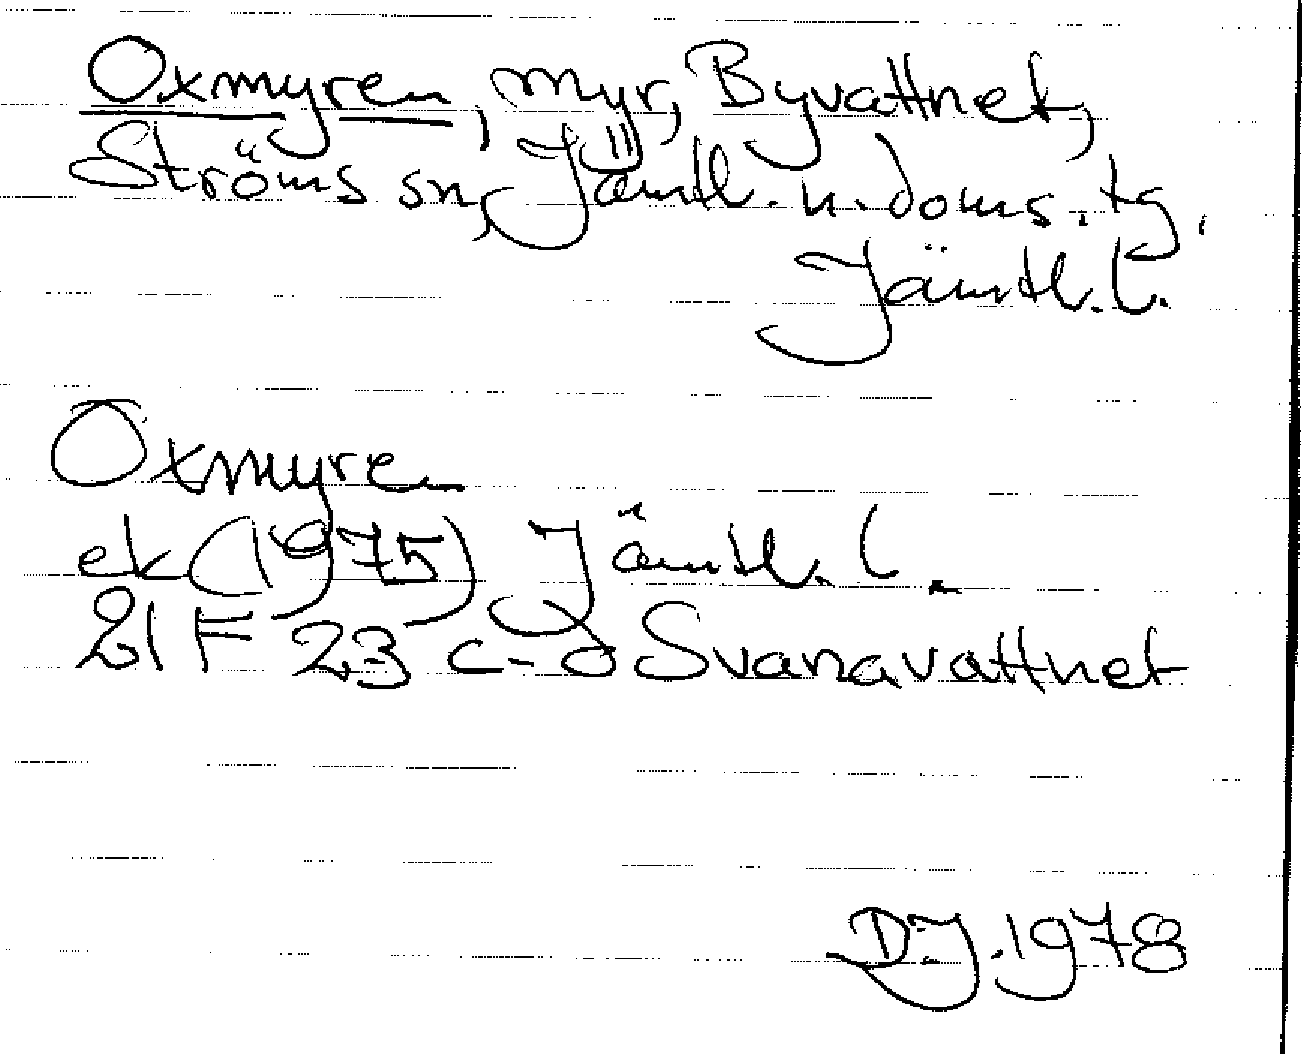 Oxmyren, myr, Byvattnet,
Ströms sn, Jämtl. n. doms. tg.
Jämtl. l.
Oxmyren
ek (1975) Jämtl. l.
21 F 23 c-d Svanavattnet
D.J. 1978